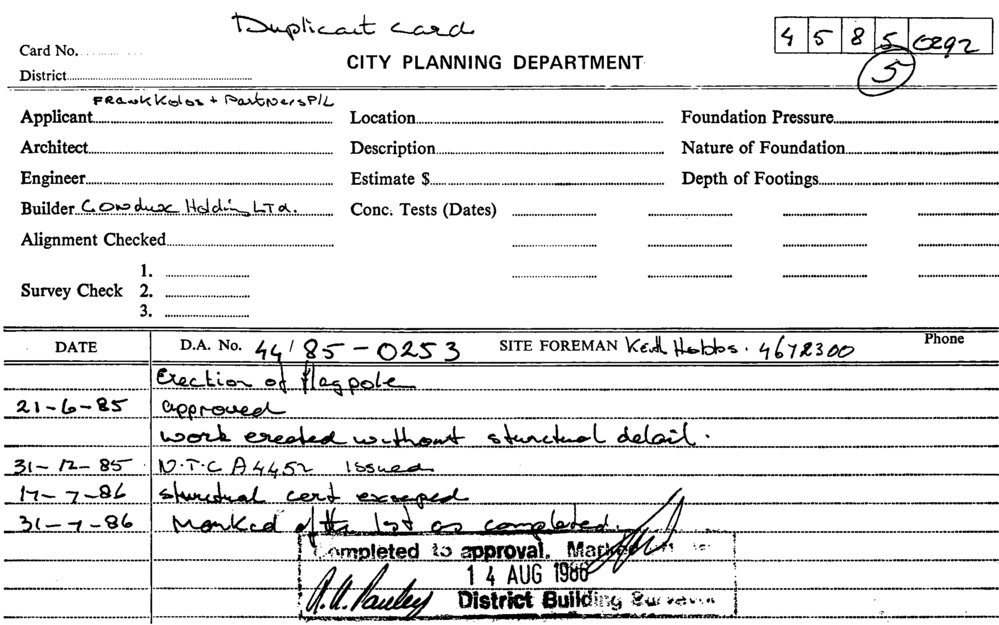 Duplicart card
45850292
5
Card No.
CITY PLANNING DEPARTMENT
District
Applicant Frank Kolos + Partners P/L Location Foundation Pressure
Architect Description Nature of Foundation
Engineer Estimate $ Depth of Footings
Builder Condux Holding LTd. Conc. Tests (Dates)
Alignment Checked
Survey Check 1.
2.
3.
DATE D.A. No. 44/85-0253 SITE FOREMAN Keith Hobbs. 4672300 Phone
Erection of flagpole
21-6-85 approved
work erected without sturctual detail.
31-12-85 N.T.C A4452 Issued
17-7-86 sturctual cert excepted
31-7-86 Marked of the lst as completed.
Completed to approval. Marked off
14 AUG 1986
A.A. Pauley District Building Surveyor